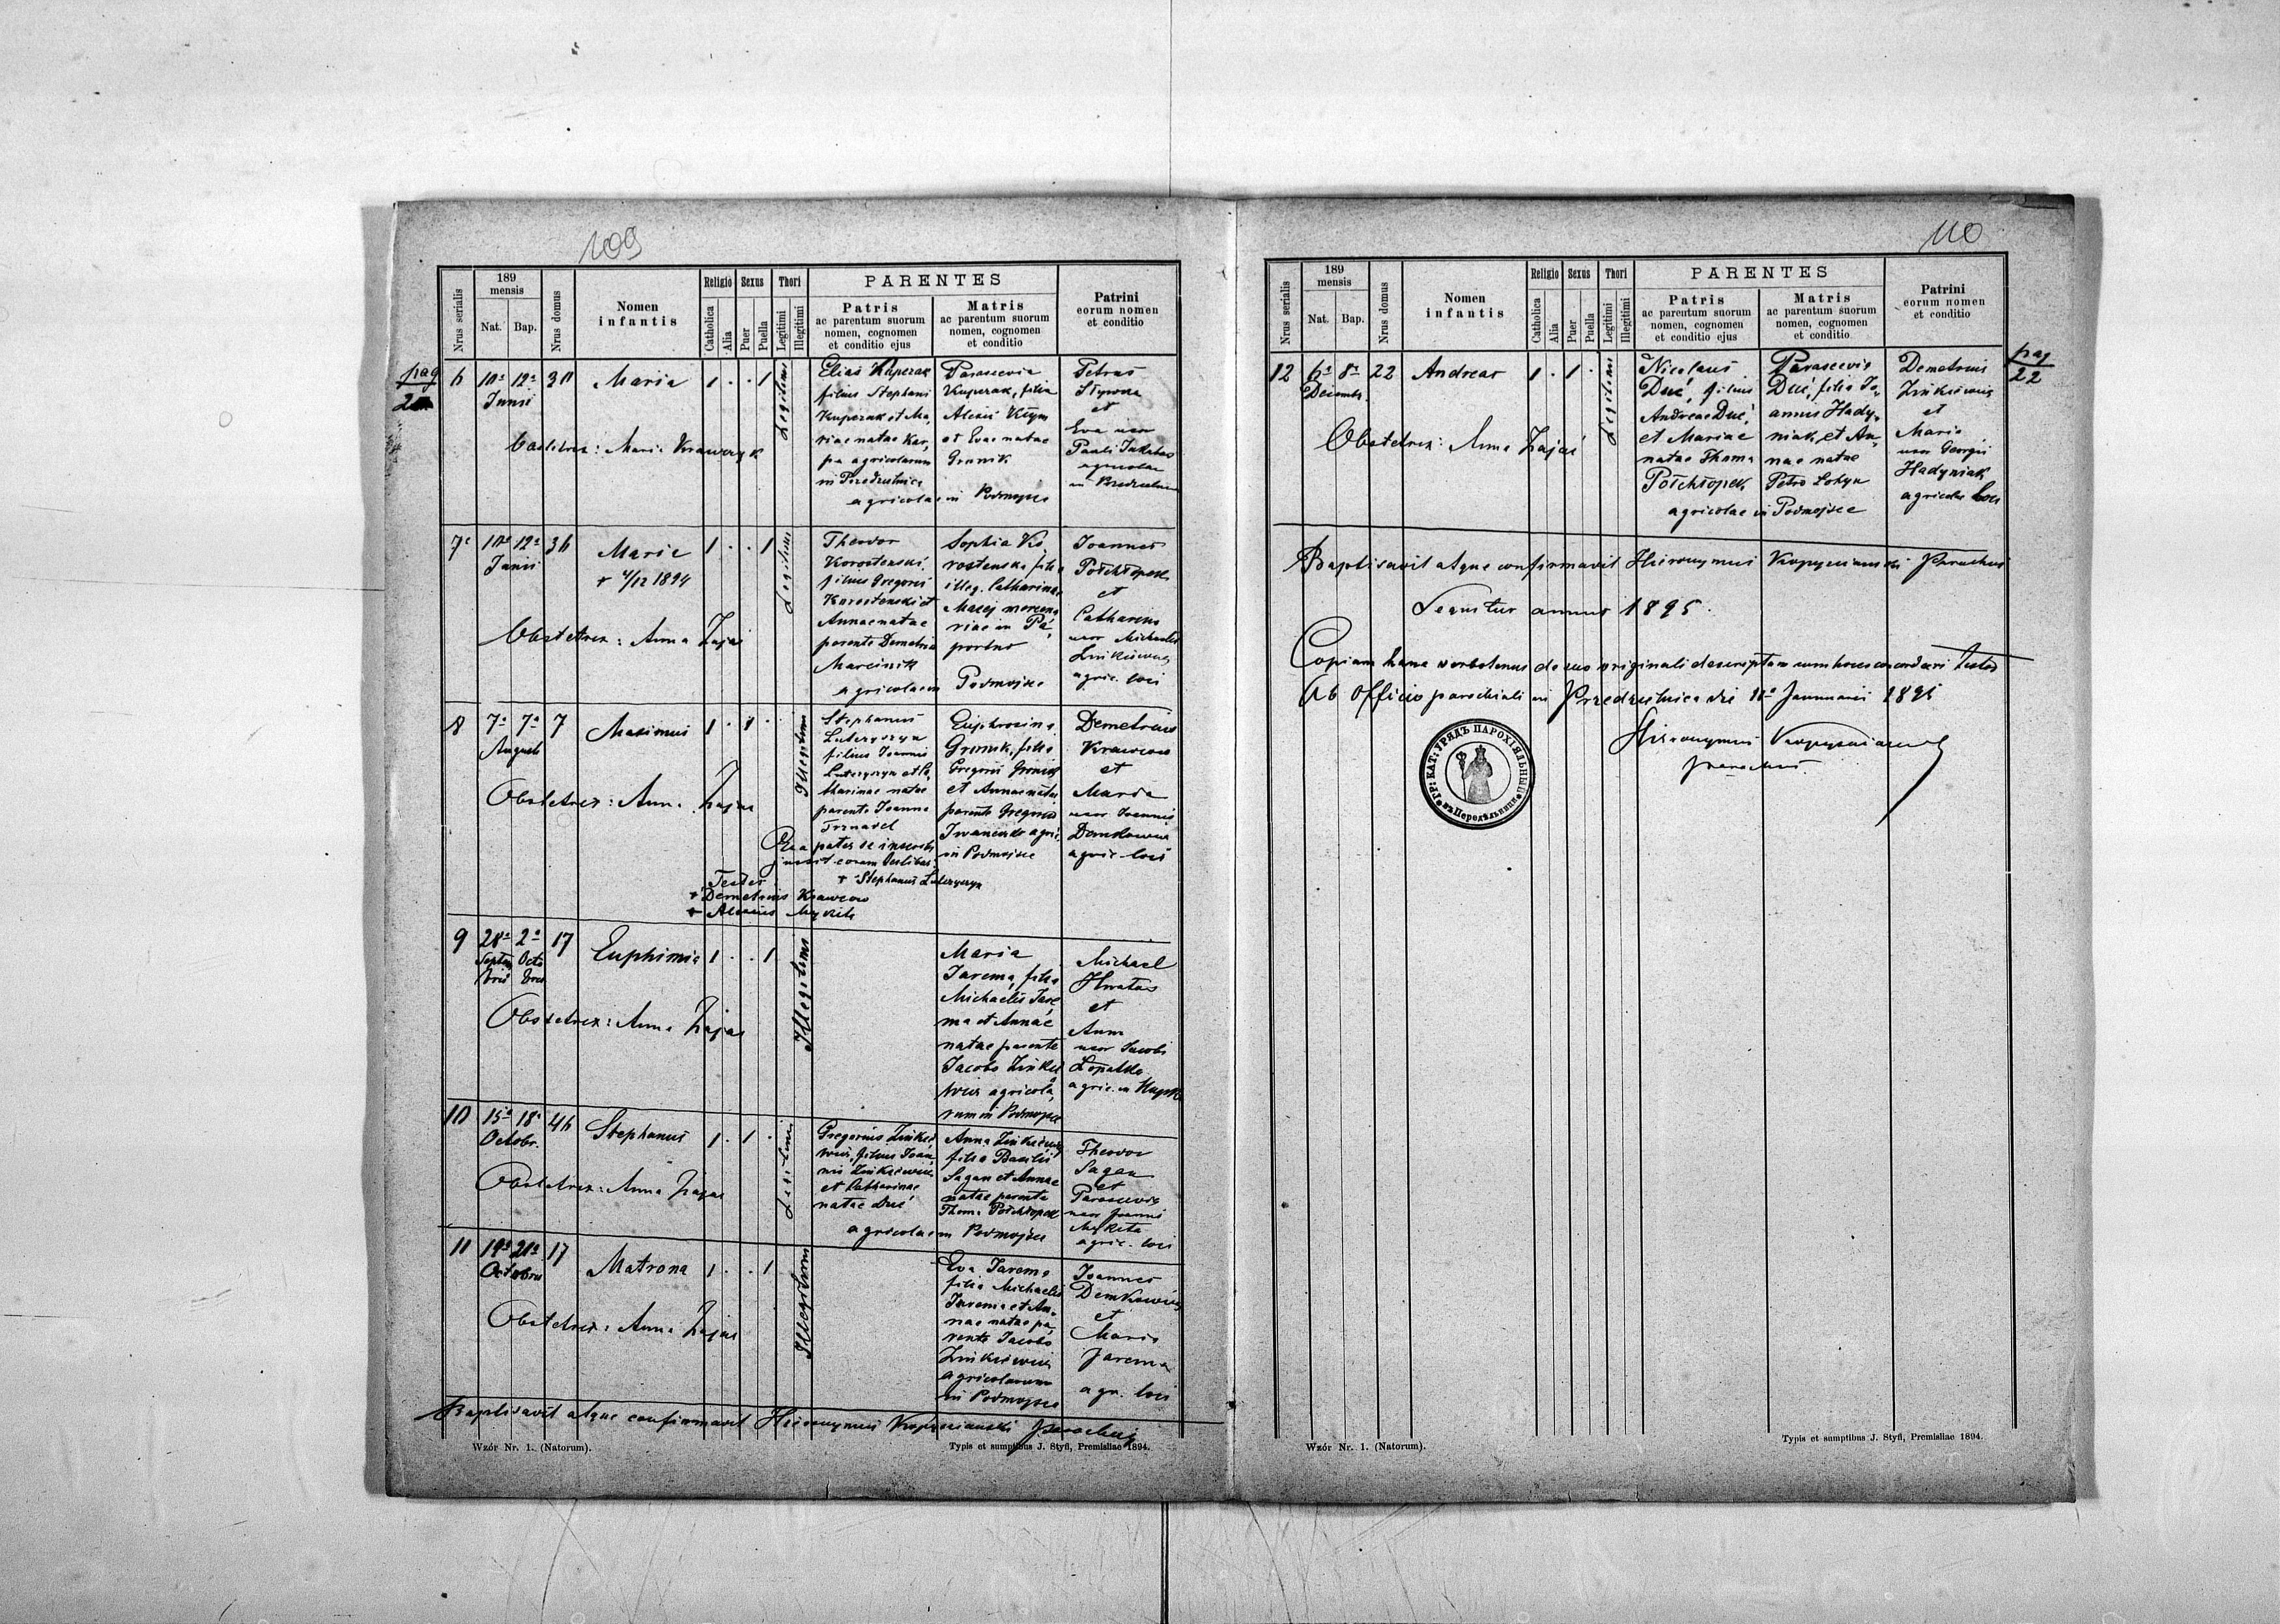 109
Nrus serialis
189
mensis
Nat. Bap.
Nrus domus
Nomen
infantis
Religio Sexus Thori
Catholica Alia Puer Puella Legitimi Illegitimi
PARENTES
Patris
ac parentum suorum
nomen, cognomen
et conditio ejus
Matris
ac parentum suorum
nomen, cognomen
et conditio
Patrini
eorum nomen
et conditio
pag
6 10a 12a Junii
Maria
1 . . 1
Legitimi
Elias Kuperak
filius Stephani
Kuperak et Ma,
riae natae Kar,
pa agricolarum
in Przedzielnica
Parascevia
Kuperak, filia
Alexii Kłym
et Evae natae
Gronik
agricolae in Podmojsce
Petrus
et
Eva uxor
Pauli
agricolae
Obstetrix: Maria Krawczyk
7. 10a 12a 36
Junii
Maria
+ 4/12 1894
1 . . 1
Legitimi
Theodor
Korostenski
filius Gregorii
Korostenski et
Annae natae
parente Demetrio
Marcinik
Sophia Ko
rostenska filia
illeg. Catharinae
Maciej
agricolae in Podmojsce
Joannes
Połchłopek
et
Catharina
uxor Michaelis
Zinkiewicz
agric. loci
Obstetrix: Anna Zając
8 7a 7a 7
Augusti
Maximus
1 . 1 .
Illegitimi
Stephanus
Luterczyn
filius Joannis
Luterczyn et Ca,
tharinae natae
parente Joanne
Euphrosina
Gronik, filia
Gregorii Gronik
et Annae natae
parente Gregorio
Iwanenko agric.
in Podmojsce
Demetrius
Krawcow
et
Maria
uxor Joannis
Demkowicz
agric. loci
Obstetrix: Anna Zając
Qua pater se inscribi
jussit coram testibus:
+ Stephanus Luterczyn
Testes
+ Demetrius Krawcow
+ Alexius Mykita
9 28a 2a 17
Septem Octo
bris bris
Euphimia
1 . . 1
Illegitimi
Maria
Jarema, filia
Michaelis Jare,
ma et Annae
natae parente
Jacobo Zinkie
wicz agricola,
rum in Podmojsce
Michael
et
Anna
uxor Jacobi
Łopatko
Obstetrix: Anna Zając
10 15a 18a 46
Octobr.
Stephanus
1 . 1 .
Legitimi
Gregorius Zinkie,
wicz, filius Joan
nis Zinkiewicz
et Catharinae
natae Duć
Anna Zinkiewicz
filia Basilii
Sagan et Annae
natae parente
Thoma Połchłopek
agricolae in Podmojsce
Theodor
Sagan
et
Parascevia
uxor Joannis
Mykita
agric. loci
Obstetrix: Anna Zając
11 19a 21a 17
Octobris
Matrona
1 . . 1
Illegitimi
Eva Jarema
filia Michaelis
Jarema et An,
nae natae pa,
rente Jacobo
Zinkiewicz
agricolarum
in Podmojsce
Joannes
Demkowicz
et
Maria
Jarema
agr. loci
Obstetrix: Anna Zając
Baptisavit atque confirmavit Hieronymus Kopyscianski parochus
Wzór Nr. 1. (Natorum).
Typis et sumptibus J. Styfi, Premisliae 1894.
110
Nrus serialis
189
mensis
Nat. Bap.
Nrus domus
Nomen
infantis
Religio Sexus Thori
Catholica Alia Puer Puella Legitimi Illegitimi
PARENTES
Patris
ac parentum suorum
nomen, cognomen
et conditio ejus
Matris
ac parentum suorum
nomen, cognomen
et conditio
Patrini
eorum nomen
et conditio
pag
22
12 6a 8a 22
Decembr.
Andreas
1 . 1 .
Legitimi
Nicolaus
Duć, filius
Andreae Duć,
et Mariae
natae Thoma
Połchłopek
Parascevia
Duć, filia Jo,
annis Hady,
niak, et An,
nae natae
Petro Łohyn
agricolae in Podmojsce
Demetrius
Zinkiewicz
et
Maria
uxor Georgii
Hadyniak
agricolae loci
Obstetrix: Anna Zając
Baptisavit atque confirmavit Hieronymus Kopyscianski Parochus
Sequitur annus 1895.
Copiam hanc verbotenus de suo originali descriptam cum hocce concordari testor
Ab Officio parochiali in Przedzielnica die Januarii 1895
Hieronymus Kopyscianski
parochus.
ГР: КАТ: УРЯДЪ ПАРОХІЯЛЬНЫЙ въ Передѣльници
Wzór Nr. 1. (Natorum).
Typis et sumptibus J. Styfi, Premisliae 1894.